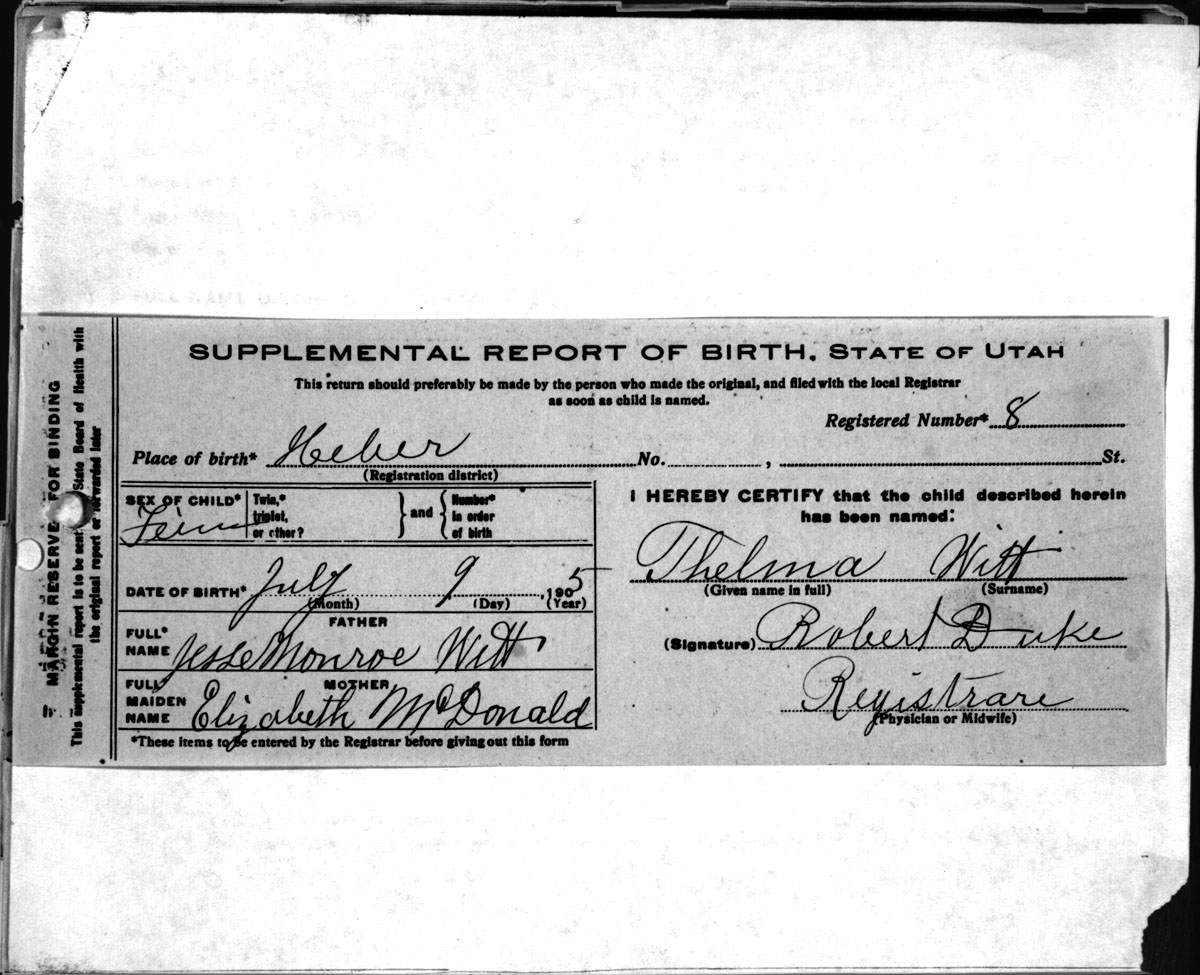 SUPPLEMENTAL REPORT OF BIRTH, STATE OF UTAH
This return should preferably be made by the person who made the original, and filed with the local Registrar
as soon as child is named.
Registered Number* 8
Place of birth* Heber No. , St.
(Registration district)
SEX OF CHILD* Fem
Twin,*
triplet,
or other?
} and {
Number*
in order
of birth
DATE OF BIRTH* July 9 , 1905
(Month) (Day) (Year)
FATHER
FULL*
NAME Jesse Monroe Witt
MOTHER
FULL
MAIDEN
NAME Elizabeth McDonald
*These items to be entered by the Registrar before giving out this form
I HEREBY CERTIFY that the child described herein
has been named:
Thelma Witt
(Given name in full) (Surname)
(Signature) Robert Duke
Registrare
(Physician or Midwife)
MARGIN RESERVE FOR BINDING
This supplemental report is to be sent State Board of Health with
the original report or forwarded later